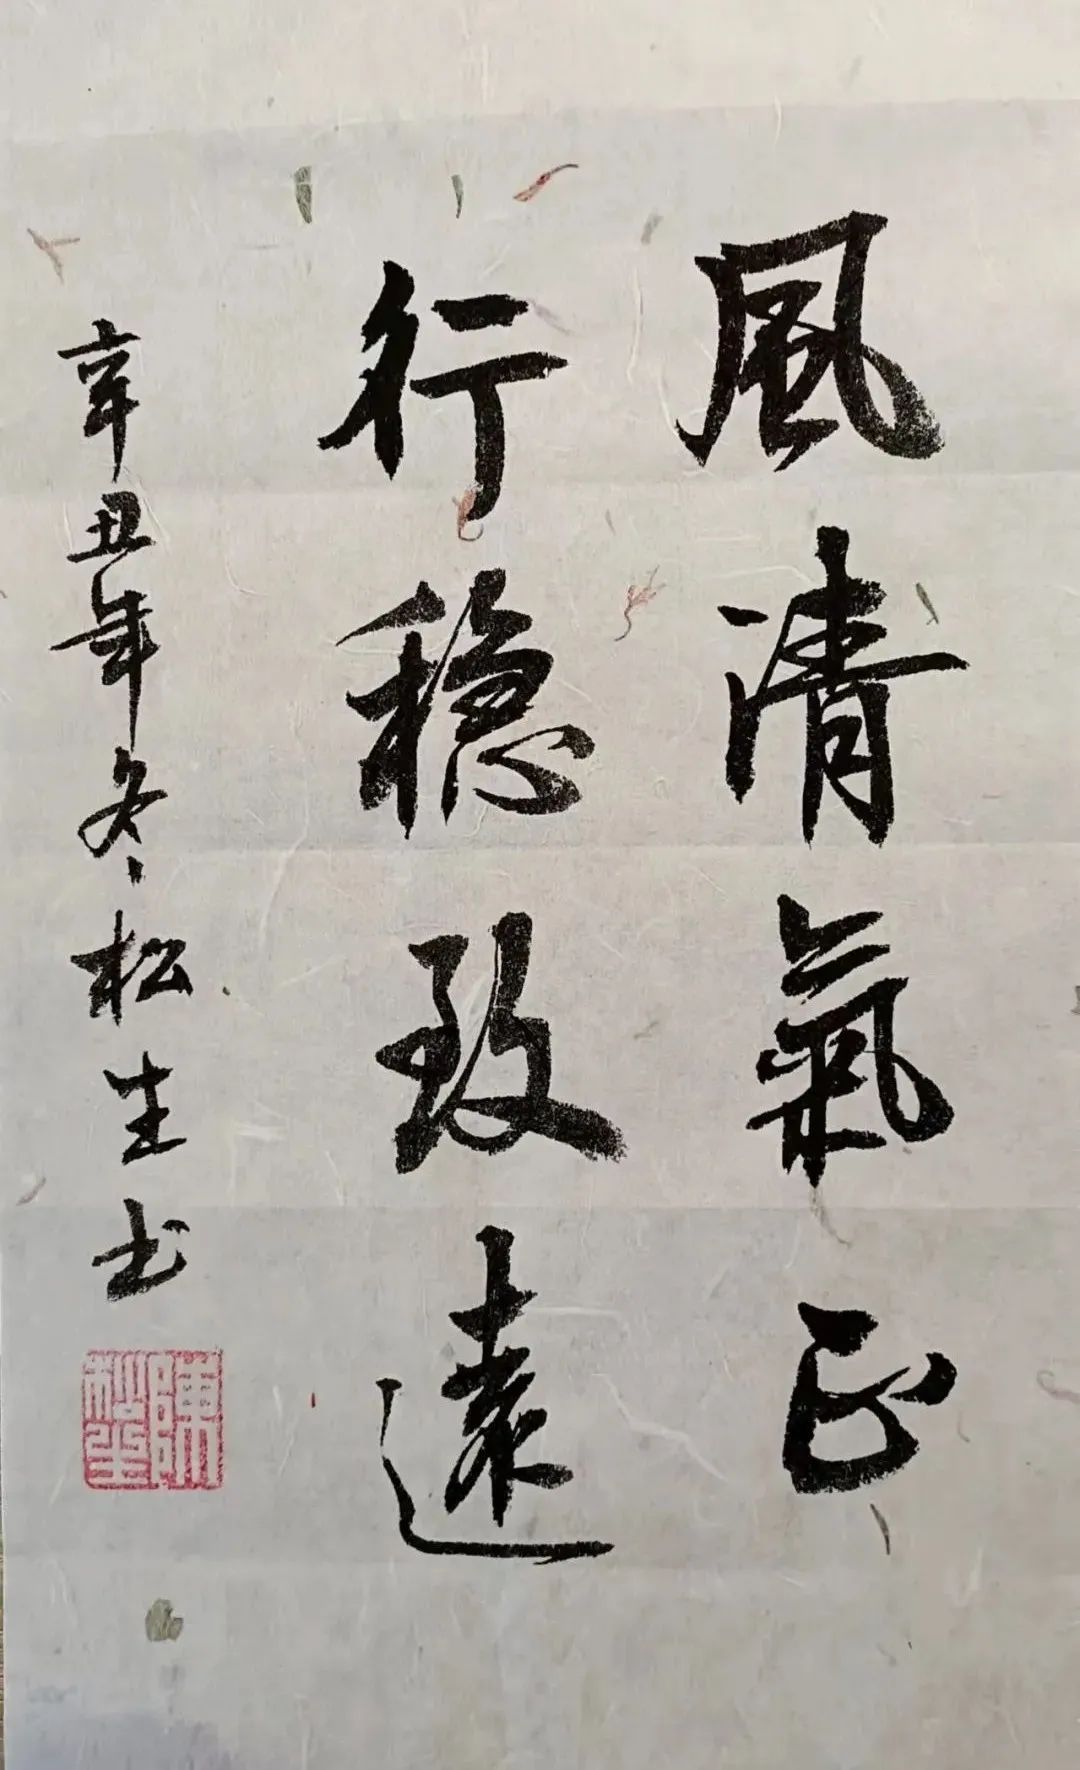 風清氣正
行穩致遠
辛丑年冬松生书
陳松生